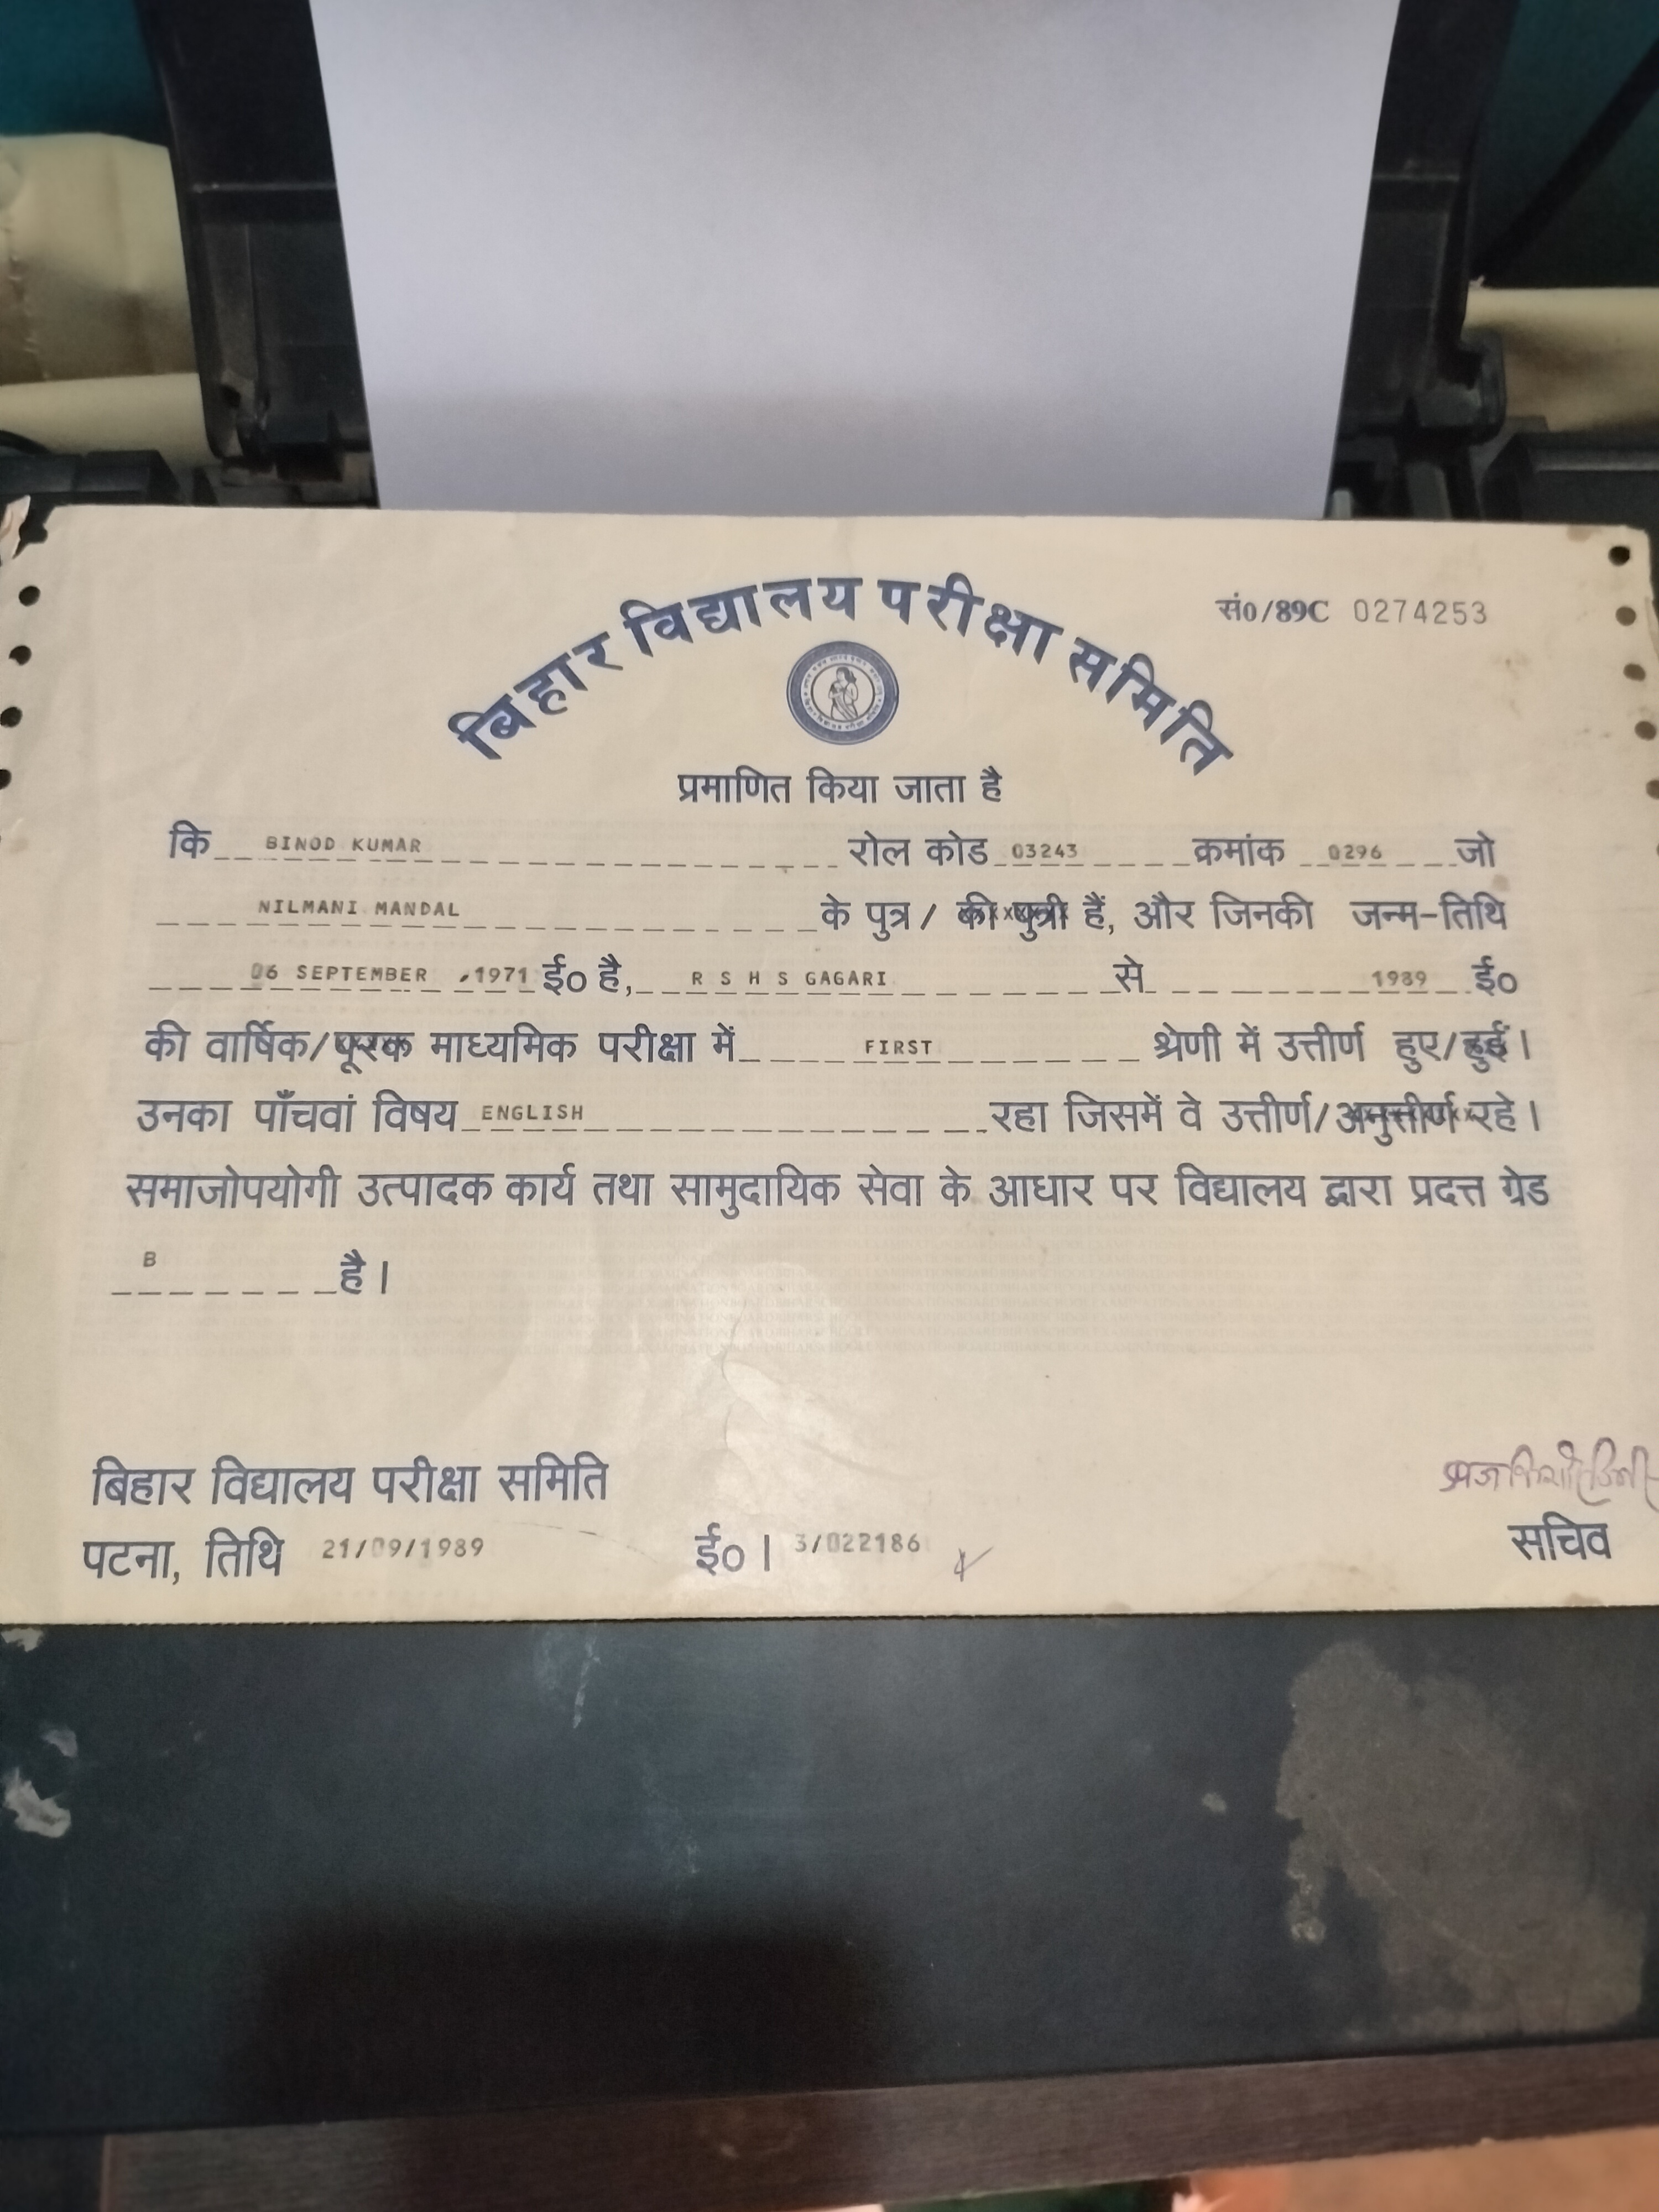 बिहार विद्यालय परीक्षा समिति
सं०/89C 0274253
प्रमाणित किया जाता है
कि BINOD KUMAR रोल कोड 03243 क्रमांक 0296 जो
NILMANI MANDAL के पुत्र / की पुत्री हैं, और जिनकी जन्म-तिथि
06 SEPTEMBER ,1971 ई० है, R S H S GAGARI से 1989 ई०
की वार्षिक/पूरक माध्यमिक परीक्षा में FIRST श्रेणी में उत्तीर्ण हुए/हुईं।
उनका पाँचवां विषय ENGLISH रहा जिसमें वे उत्तीर्ण/अनुत्तीर्ण रहे।
समाजोपयोगी उत्पादक कार्य तथा सामुदायिक सेवा के आधार पर विद्यालय द्वारा प्रदत्त ग्रेड
B है।
बिहार विद्यालय परीक्षा समिति
पटना, तिथि 21/09/1989 ई०। 3/022186
सचिव